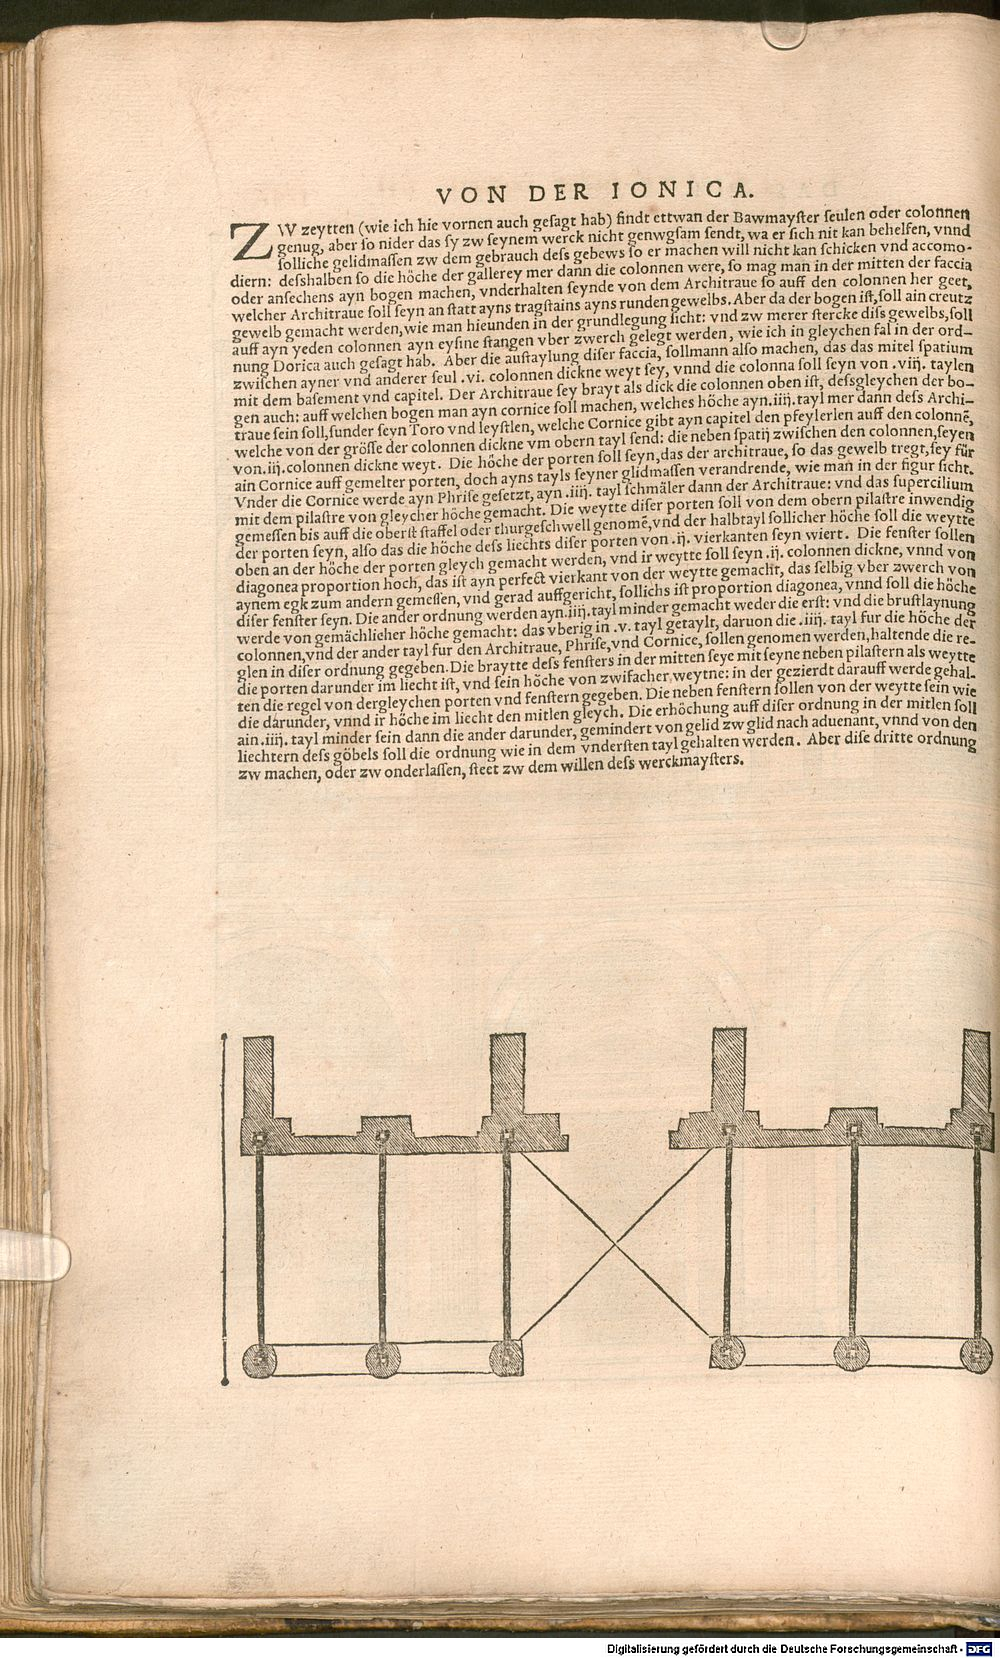 VON DER IONICA.
ZW zeytten (wie ich hie vornen auch gesagt hab) findt ettwan der Bawmayster seulen oder colonnen
genug, aber so nider das sy zw seynem werck nicht genwgsam sendt, wa er sich nit kan behelfen, vnnd
solliche gelidmassen zw dem gebrauch dess gebews so er machen will nicht kan schicken vnd accomo-
diern: desshalben so die höche der gallerey mer dann die colonnen were, so mag man in der mitten der faccia
oder ansechens ayn bogen machen, vnderhalten seynde von dem Architraue so auff den colonnen her geet,
welcher Architraue soll seyn an statt ayns tragstains ayns runden gewelbs. Aber da der bogen ist, soll ain creutz
gewelb gemacht werden, wie man hieunden in der grundlegung sicht: vnd zw merer stercke diss gewelbs, soll
auff ayn yeden colonnen ayn eysine stangen vber zwerch gelegt werden, wie ich in gleychen fal in der ord-
nung Dorica auch gesagt hab. Aber die austaylung diser faccia, sollmann also machen, das das mitel spatium
zwischen ayner vnd anderer seul .vi. colonnen dickne weyt sey, vnnd die colonna soll seyn von .viij. taylen
mit dem basement vnd capitel. Der Architraue sey brayt als dick die colonnen oben ist, dessgleychen der bo-
gen auch: auff welchen bogen man ayn cornice soll machen, welches höche ayn .iiij. tayl mer dann dess Archi-
traue sein soll, sunder seyn Toro vnd leystlen, welche Cornice gibt ayn capitel den pfeylerlen auff den colonnē,
welche von der grösse der colonnen dickne vm obern tayl send: die neben spatij zwischen den colonnen, seyen
von .iij. colonnen dickne weyt. Die höche der porten soll seyn, das der architraue, so das gewelb tregt, sey für
ain Cornice auff gemelter porten, doch ayns tayls seyner glidmassen verandrende, wie man in der figur sicht.
Vnder die Cornice werde ayn Phrise gesetzt, ayn .iiij. tayl schmäler dann der Architraue: vnd das supercilium
mit dem pilastre von gleycher höche gemacht. Die weytte diser porten soll von dem obern pilastre inwendig
gemessen bis auff die oberst staffel oder thurgeschwell genomē, vnd der halbtayl sollicher höche soll die weytte
der porten seyn, also das die höche dess liechts diser porten von .ij. vierkanten seyn wiert. Die fenster sollen
oben an der höche der porten gleych gemacht werden, vnd ir weytte soll seyn .ij. colonnen dickne, vnnd von
diagonea proportion hoch, das ist ayn perfect vierkant von der weytte gemacht, das selbig vber zwerch von
aynem egk zum andern gemessen, vnd gerad auffgericht, sollichs ist proportion diagonea, vnnd soll die höche
diser fenster seyn. Die ander ordnung werden ayn .iiij. tayl minder gemacht weder die erst: vnd die brustlaynung
werde von gemächlicher höche gemacht: das vberig in .v. tayl getaylt, daruon die .iiij. tayl fur die höche der
colonnen, vnd der ander tayl fur den Architraue, Phrise, vnd Cornice, sollen genomen werden, haltende die re-
glen in diser ordnung gegeben. Die braytte dess fensters in der mitten seye mit seyne neben pilastern als weytte
die porten darunder im liecht ist, vnd sein höche von zwifacher weytne: in der gezierdt darauff werde gehal-
ten die regel von dergleychen porten vnd fenstern gegeben. Die neben fenstern sollen von der weytte sein wie
die darunder, vnnd ir höche im liecht den mitlen gleych. Die erhöchung auff diser ordnung in der mitlen soll
ain .iiij. tayl minder sein dann die ander darunder, gemindert von gelid zw glid nach aduenant, vnnd von den
liechtern dess göbels soll die ordnung wie in dem vndersten tayl gehalten werden. Aber dise dritte ordnung
zw machen, oder zw onderlassen, steet zw dem willen dess werckmaysters.
Digitalisierung gefördert durch die Deutsche Forschungsgemeinschaft - DFG